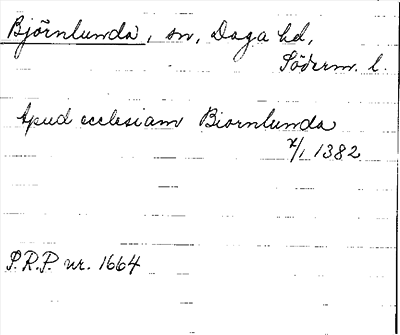 Björnlunda, sn, Daga hd,
Söderm. l.
Apud ecclesiam Biornlunda
/1 1382
P.R.P. nr. 1664